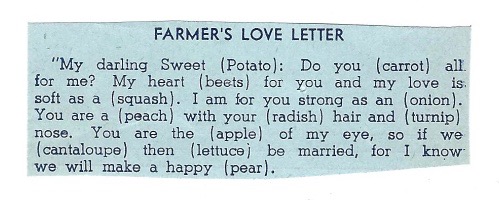 FARMER'S LOVE LETTER
"My darling Sweet (Potato): Do you (carrot) all
for me? My heart (beets) for you and my love is
soft as a (squash). I am for you strong as an (onion).
You are a (peach) with your (radish) hair and (turnip)
nose. You are the (apple) of my eye, so if we
(cantaloupe) then (lettuce) be married, for I know
we will make a happy (pear).